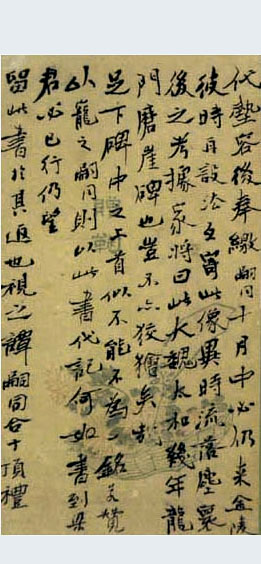 代墊容後奉繳嗣同十月中必仍來金陵
彼時再設法此像異時流落塵寰
後之考據家將曰此大魏太和幾年龍
門磨崖碑也豈不亦狡獪矣哉
足下碑中之上首似不能不為一銘文贊
以寵之嗣同則以此書代記何如書到梁
君必已行仍望
留此書於其過也視之譚嗣同合十頂禮